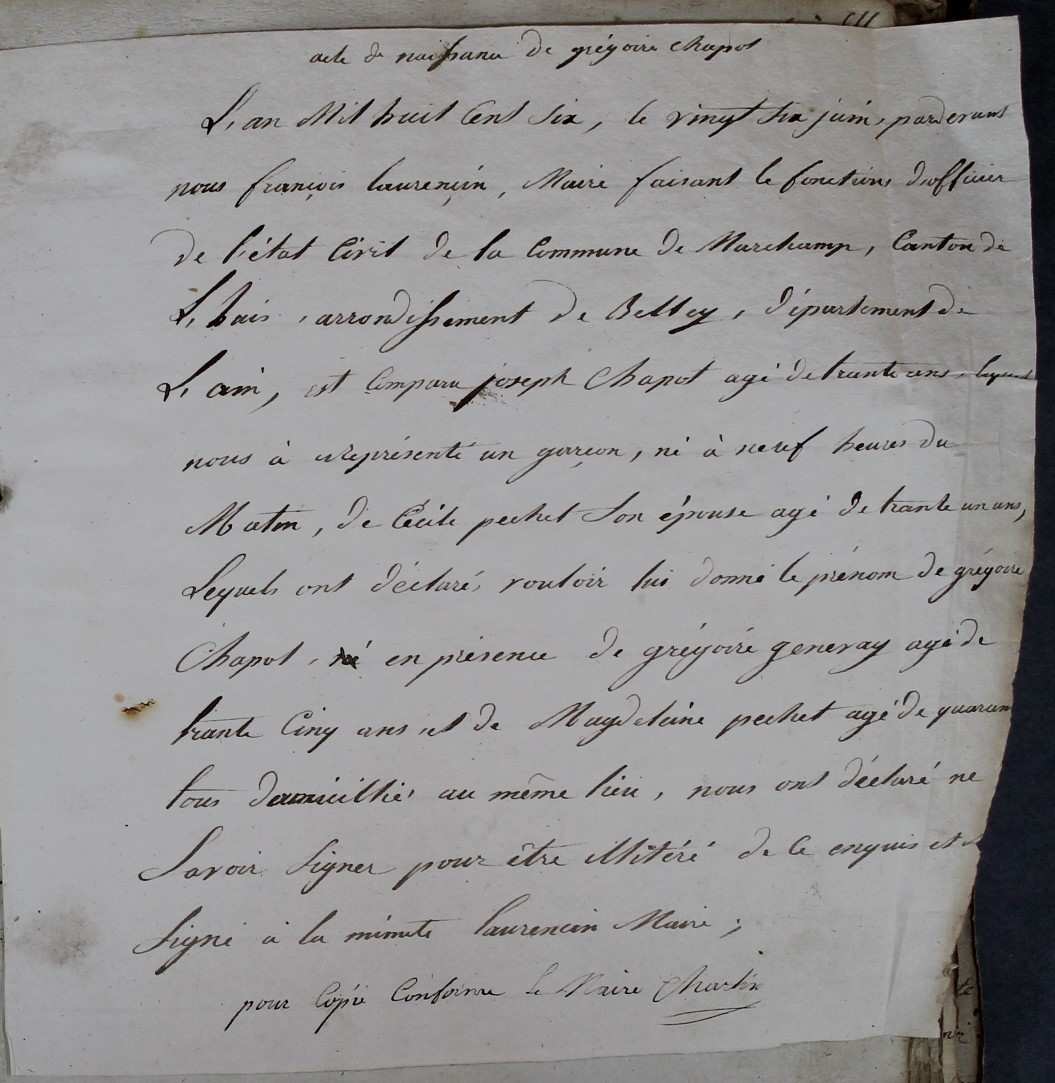 acte de naissance de grégoire chapot
L'an Mil huit Cent Six, le vingt Six juin, pardevant
nous françois laurençin, Maire faisant le fonctions d'officier
de l'état Civil de la Commune de Marchamp, Canton de
L'huis, arrondissement de Belley, département de
L'ain, est Comparu joseph Chapot agé de trante ans, lequel
nous à représenté un garçon, né à neuf heures du
Matin, de Cécile pechet Son épouse agé de trante un ans,
Lequels ont déclaré, vouloir lui donné le prénom de grégoire
Chapot, en présence de grégoire genevay agé de
trante Cinq ans et de Magdelaine pechet agé de quaran
tous domicillié au même lieu, nous ont déclaré ne
Savoir Signer pour être illitéré de Ce enquis et
Signé à la minute laurencin Maire;
pour Copie Conforme le Maire